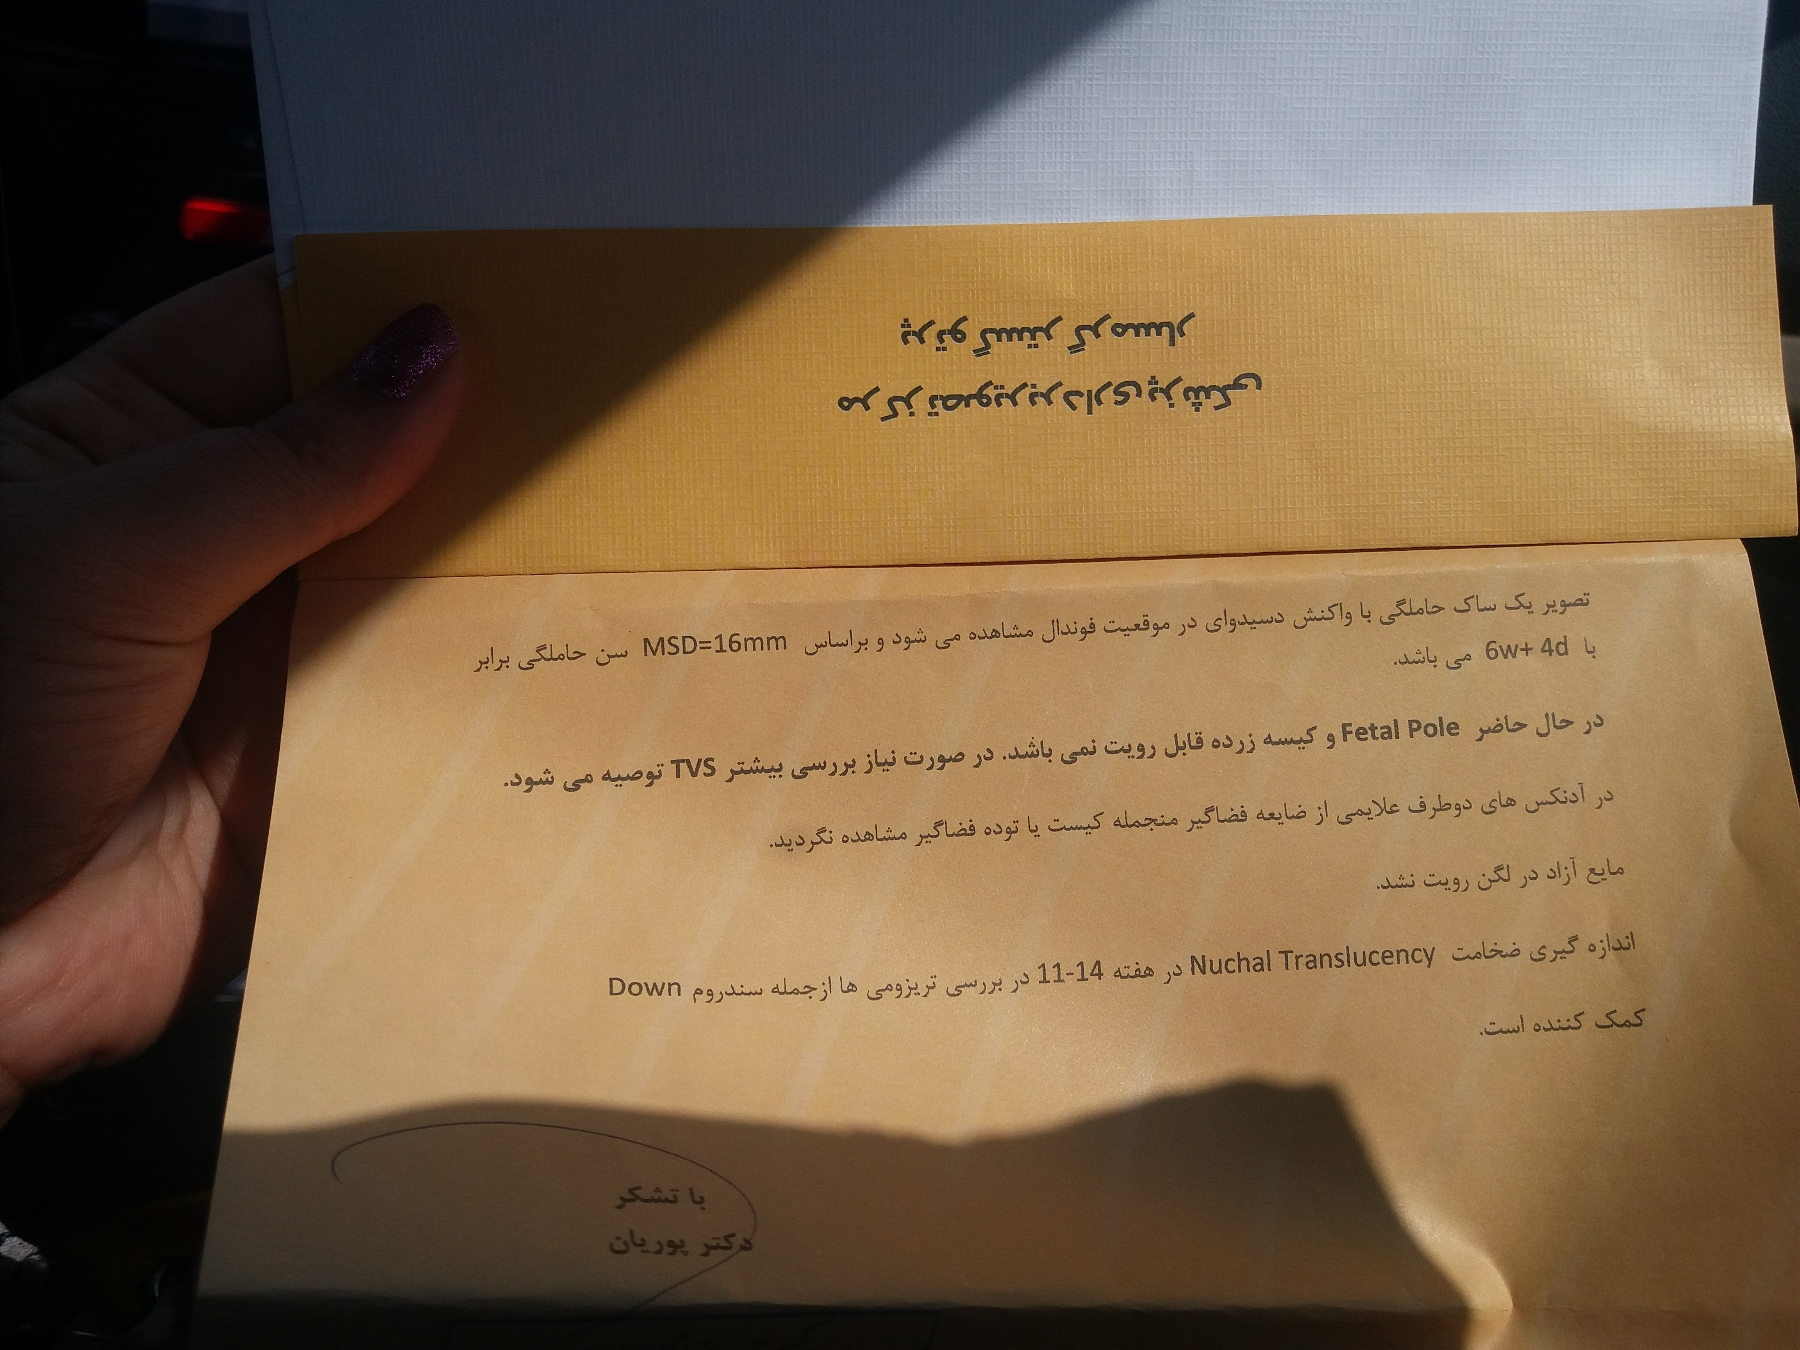 مرکز تصویربرداری پزشکی
پرتو گستر گرمسار
تصویر یک ساک حاملگی با واکنش دسیدوای در موقعیت فوندال مشاهده می شود و براساس MSD=16mm سن حاملگی برابر
با 6w+ 4d می باشد.
در حال حاضر Fetal Pole و کیسه زرده قابل رویت نمی باشد. در صورت نیاز بررسی بیشتر TVS توصیه می شود.
در آدنکس های دوطرف علایمی از ضایعه فضاگیر منجمله کیست یا توده فضاگیر مشاهده نگردید.
مایع آزاد در لگن رویت نشد.
اندازه گیری ضخامت Nuchal Translucency در هفته 14-11 در بررسی تریزومی ها ازجمله سندروم Down
کمک کننده است.
با تشکر
دکتر پوریان